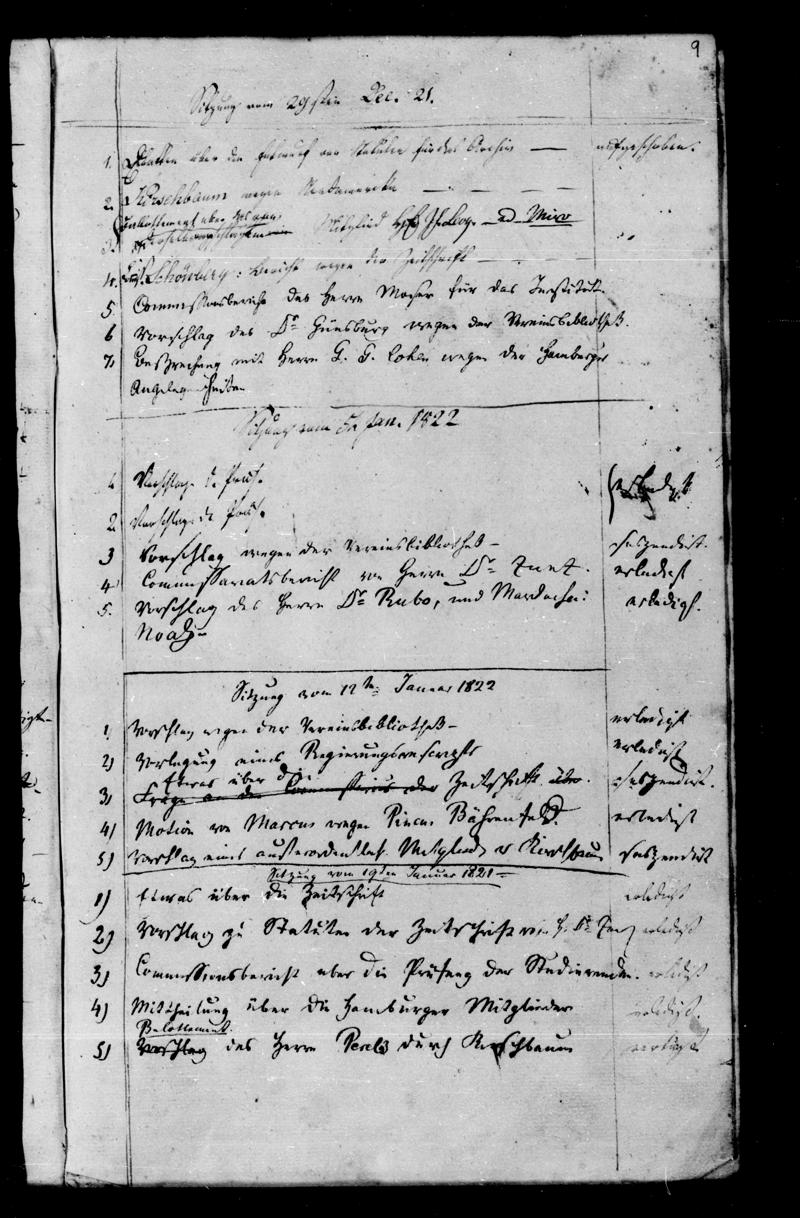 9
Sitzung vom 29sten Dec. 21.
1. Debatten über den Entwurf von Statuten für das Archiv — aufgeschoben.
2. Kirschbaum wegen Nordamerika —
Ballottement über das
3. Mitglied
4. Schönberg: Bericht wegen der Zeitschrift —
5. Commissionsbericht des Herrn Moser für das Institut.
6 Vorschlag des Dr Günsburg wegen der Vereinsbibliothek.
7, Besprechung mit Herrn G. G. Cohen wegen der Hamburger
Angelegenheiten
Sitzung vom 5n Jan. 1822
1. Vorschlag d. Präs. erledigt
2. Vorschlag d. Präs.
3 Vorschlag wegen der Vereinsbibliothek – suspendirt.
4 Commissariatsbericht von Herrn Dr Zunz. erledigt
5. Vorschlag des Herrn Dr Rubo, und Mardochai erledigt.
Noah –
Sitzung vom 12ten Januar 1822
1, Vorschlag wegen der Vereinsbibliothek – erledigt
2) Vorlegung eines Regierungsrescripts erledigt
Etwas über die
3) Frage an den Commissarius der Zeitschrift suspendirt.
4) Motion von Marcus wegen Pincus Bährenfeld. erledigt
5) Vorschlag eines außerordentlich. Mitglieds v Kirschbaum suspendirt
Sitzung vom 19ten Januar 1821 –
1) Etwas über die Zeitschrift erledigt
2) Vorschlag zu Statuten der Zeitschrift von H. Dr Zunz erledigt
3) Commissionsbericht über die Prüfung der Studierenden. erledigt
4) Mittheilung über die Hamburger Mitglieder erledigt.
Ballottement
5) Vorschlag des Herrn Perels durch Kirschbaum